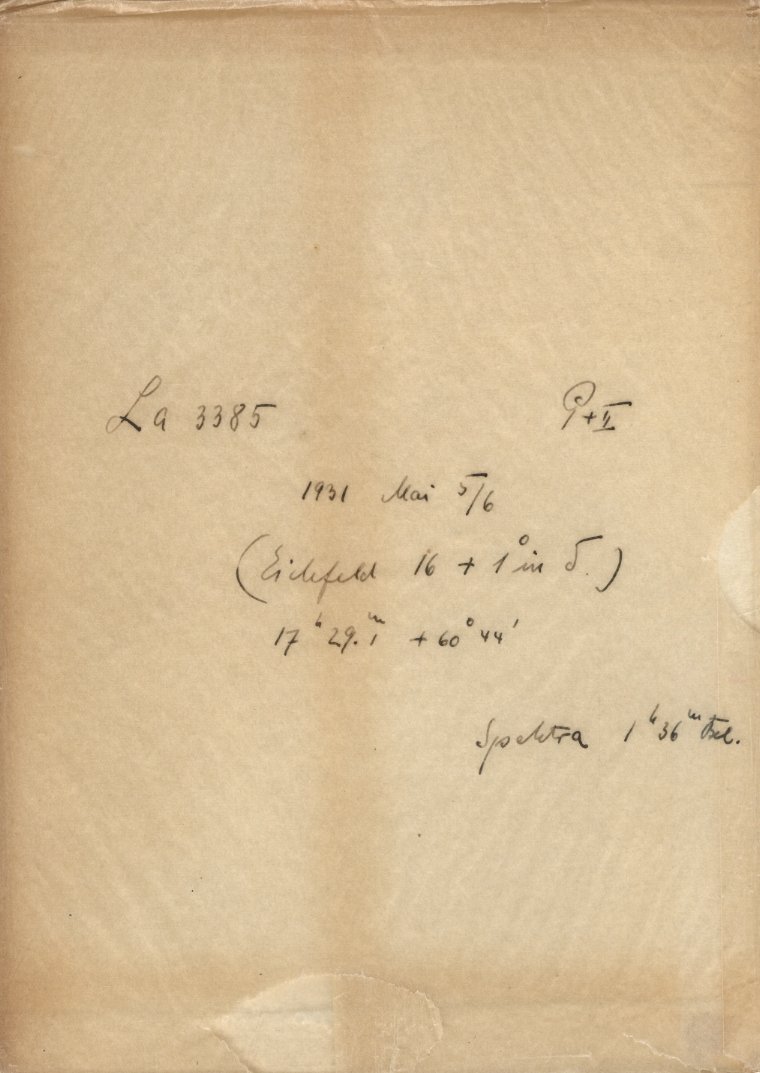 La 3385 P+II
1931 Mai 5/6
(Eichfeld 16 + 1° in δ.)
17ʰ 29.1ᵐ +60° 44'
Spektra 1ʰ 36ᵐ Bel.